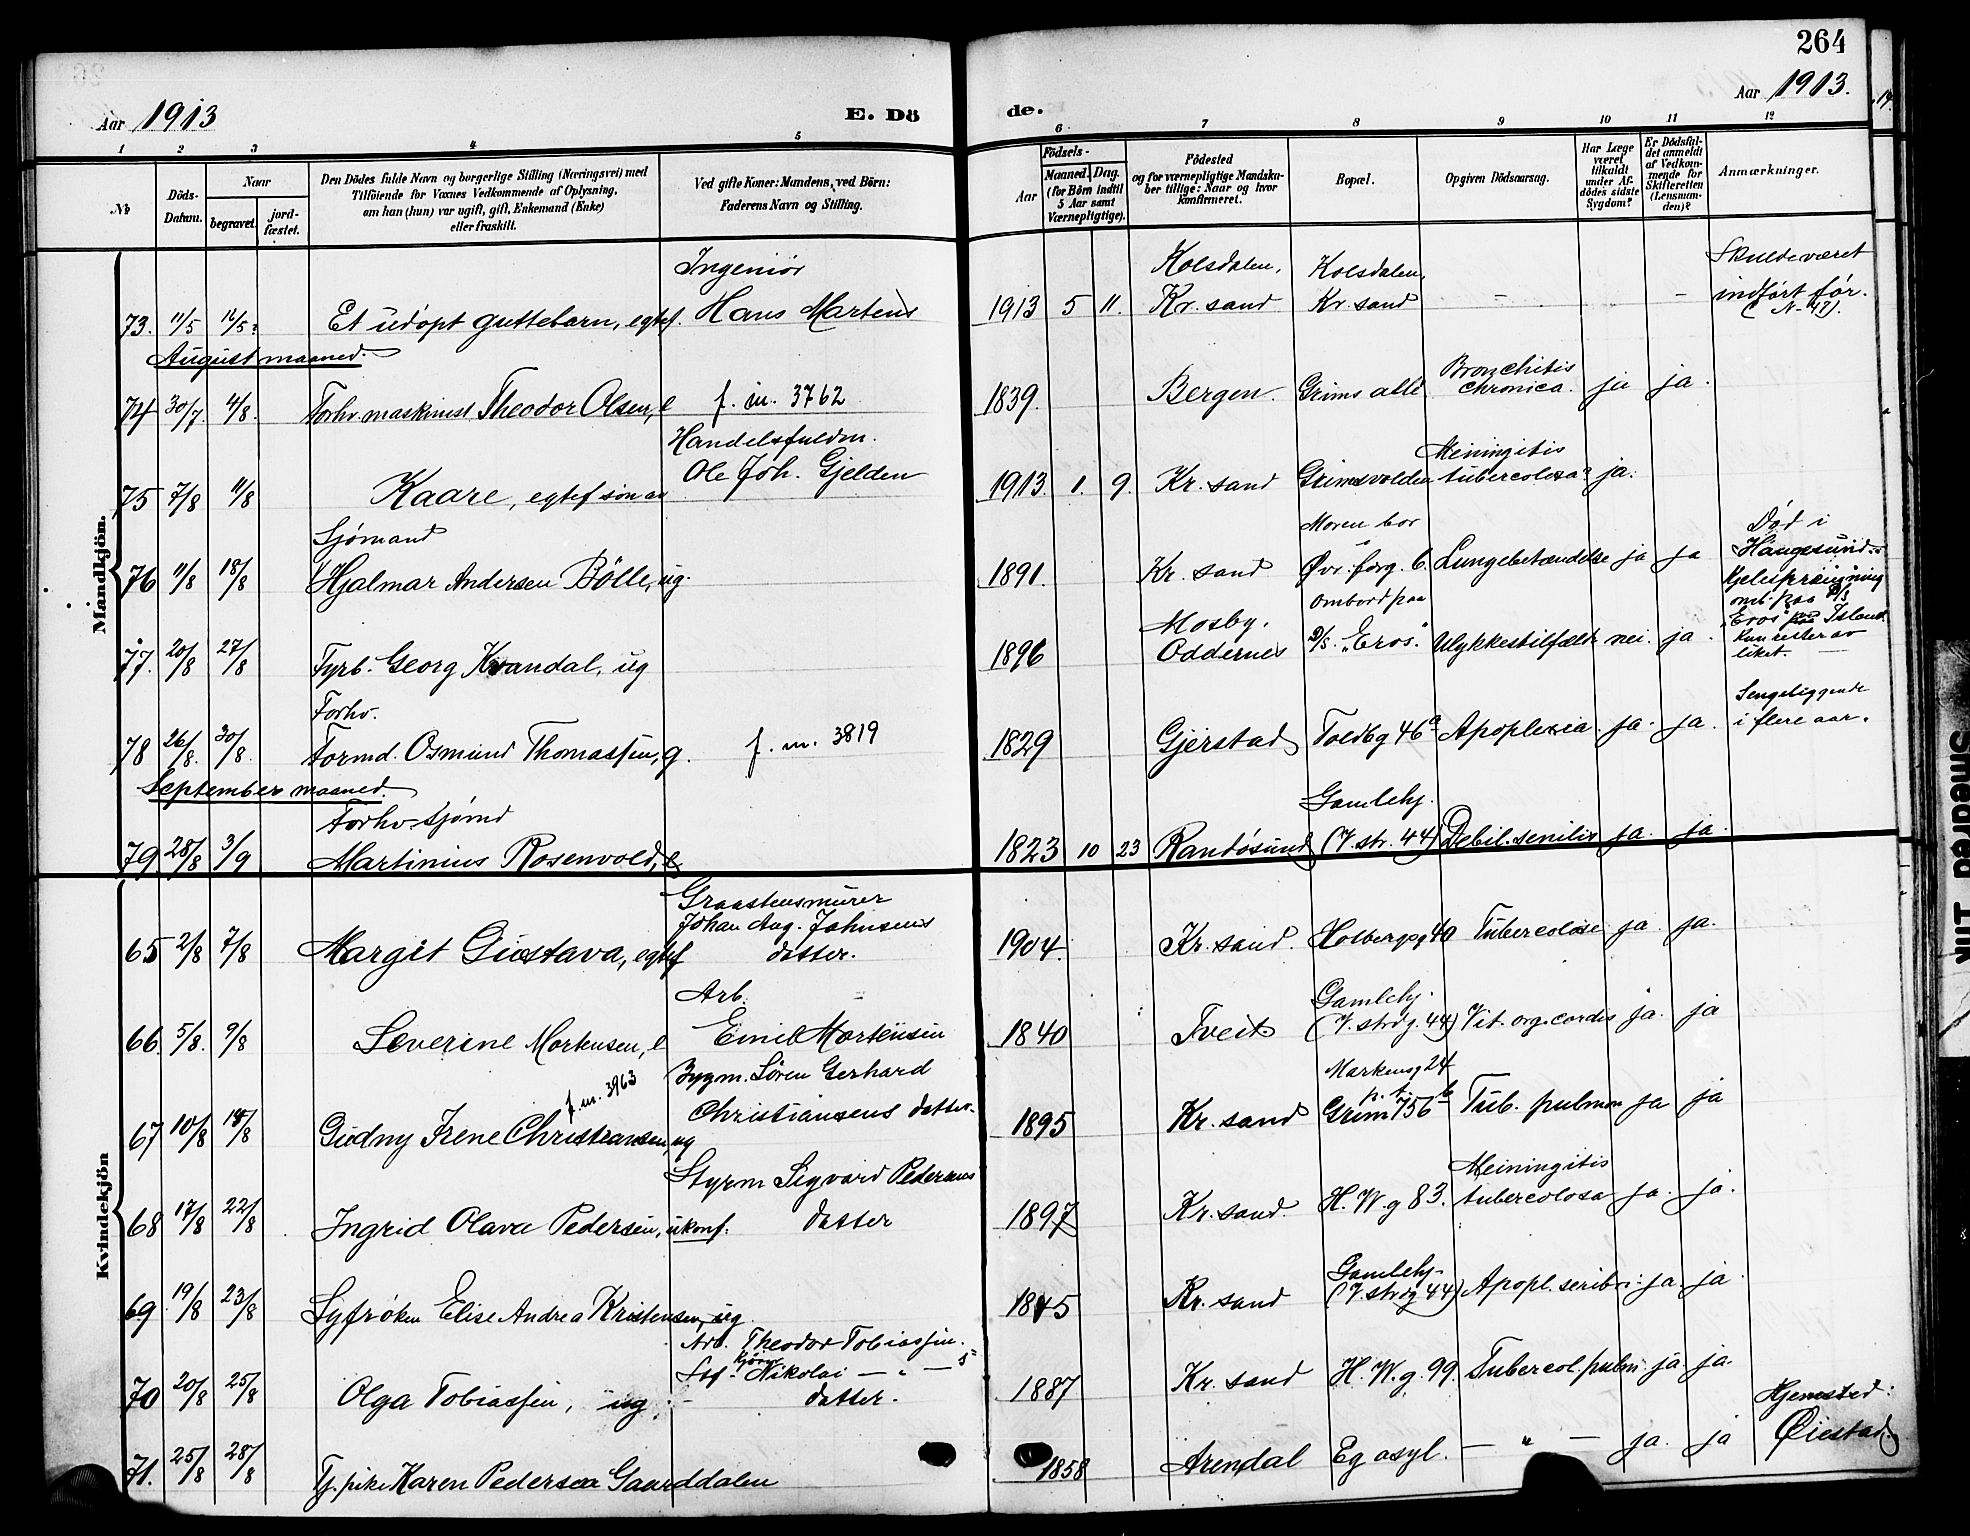 264
Aar 1913
E. Dö
de.
Aar 1913.
1 2 3 4 5 6 7 8 9 10 11 12
No
Döds-Datum.
Naar
begravet.
jord-fæstet.
Den Dödes fulde Navn og borgerlige Stilling (Næringsvei) med
Tilföiende for Voxnes Vedkommende af Oplysning,
om han (hun) var ugift, gift, Enkemand (Enke)
eller fraskilt.
Ved gifte Koner: Mandens, ved Börn:
Faderens Navn og Stilling.
Födsels-
Aar
Maaned. Dag.
(for Börn indtil
5 Aar samt
Værnepligtige).
Födested
og for værnepligtige Mandska-
ber tillige: Naar og hvor
konfirmeret.
Bopæl.
Opgiven Dödsaarsag.
Har Læge
været
tilkaldt
under Af-
dödes sidste
Sygdom?
Er Dödsfal-
det anmeldt
af Vedkom-
mende for
Skifteretten
(Lensman-
den)?
Anmærkninger.
Mandkjön.
Ingeniør
Kolsdalen, Kolsdalen, Skulde været
73. 11/5 Et udøpt guttebarn, egtef. Hans Martens 1913 5 11. Kr. sand Kr. sand - - indført før.
(N- 47).
August maaned.
Bronchitis
74 30/7. 4/8. Forhv. maskinist Theodor Olsen, e f. m. 3762 1839. Bergen. Grims allé chronica. ja ja.
Handelsfuldm.
Meiningitis
75 7/8 11/8 Kaare, egtef søn av Ole Joh. Gjelden 1913. 1. 9. Kr. sand Grimsvolden tubercolosa? ja.
Sjømand
Moren bor
Død i
76 11/8 18/8 Hjalmar Andersen Bölle, ug. 1891. Kr. sand Øvr. forg. 6. Lungebetændelse ja ja Haugesund.
Mosby.
Ombord paa
Kjelesprængning
omb. paa D/S
77. 20/8 27/8 Fyrb. Georg Kvandal, ug 1896 Oddernes D/S. "Eros". Ulykkestilfælde nei. ja. "Eros" paa Island.
Kun rester av
liket.
Forhv.
Sengeliggende
78 26/8. 30/8. Formd. Osmund Thomassen, g. f. m. 3819 1829 Gjerstad Toldbg 46a Apoplexia ja. ja. i flere aar.
September maaned.
Forhv. sjømd
Gamlehj.
79. 28/8 3/9 Martinius Rosenvold, e 1823 10 23 Randøsund (V. str. 44) Debil. senilis ja. ja.
Kvindekjön
Graastensmurer
Johan Aug. Johnsens
65 2/8 7/8 Margit Gustava, egtef datter. 1904. Kr. sand. Holbergsg 40 Tubercolose ja ja.
Arb.
Gamlehj.
66. 5/8. 9/8 Severine Mortensen, e Emil Mortensen 1840 Tveit (V. strdg. 44) Vit. org. cordis ja. ja
Bygm. Sören Gerhard
Markensg 24
f. m. 3963
p. t.
67 10/8 Gudny Irene Christiansen, ug Christiansens datter. 1895 Kr. sand Grim 756b Tub. pulmon ja ja
Styrm Sigvard Pedersens
Meiningitis
68 17/8 22/8 Ingrid Olava Pedersen, ukonf. datter 1897 Kr. sand. H. W. g 83. tubercolosa ja. ja.
Gamlehj.
69 19/8 23/8 Syfrøken Elise Andrea Kristensen, ug 1845 Kr. sand (V. strdg 44) Apopl. ja. ja.
Arb. Theodor Tobiassen.
Nikolai — " — s
70 20/8 25/8 Olga Tobiassen, ug. datter. 1887 Kr. sand H. W. g. 99. Tubercol. pulm. ja. ja.
Hjemsted:
71. 25/8 28/8 Tj. pike Karen Pedersen Gaarddalen 1858 Arendal Eg asyl. — " — ja. ja Øiestad.